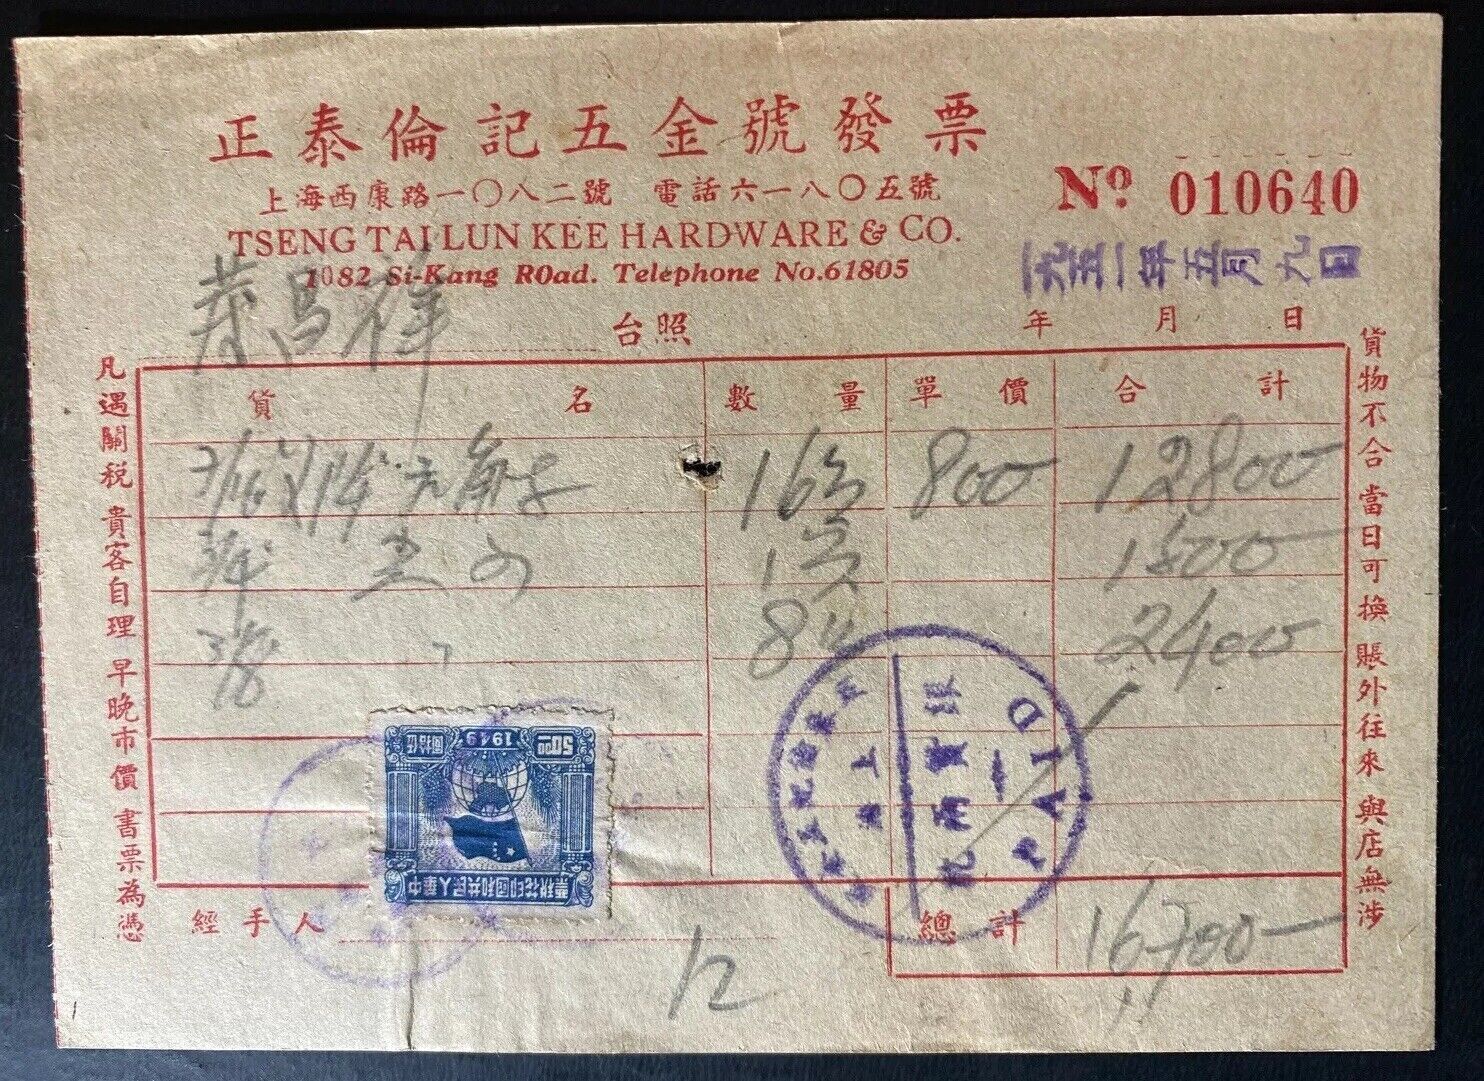 正泰倫記五金號發票
上海西康路一〇八二號 電話六一八〇五號
TSENG TAI LUN KEE HARDWARE & CO.
1082 Si-Kang ROad. Telephone No.61805
Nº 010640
一九五一年五月九日
昌祥 台照
年 月 日
凡遇關税 貴客自理 早晚市價 書票為憑
貨名 數量 單價 合計
16 800 12800
1 1500
8 2400
貨物不合 當日可換 賬外往來 與店無涉
1949
50.00
中華人民共和國印花税票
上海
銀實兩訖
PAID
經手人
總計 16,700
12